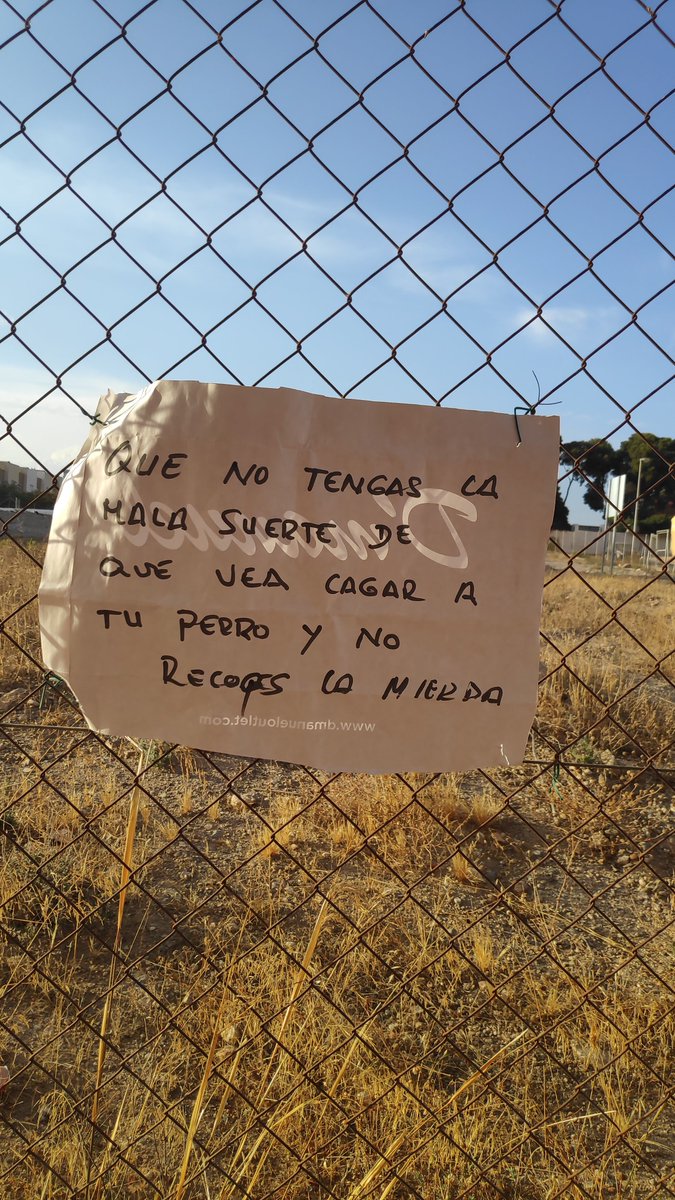 QUE NO TENGAS LA
MALA SUERTE DE
QUE VEA CAGAR A
TU PERRO Y NO
RECOGES LA MIERDA
www.dmanueloutlet.com